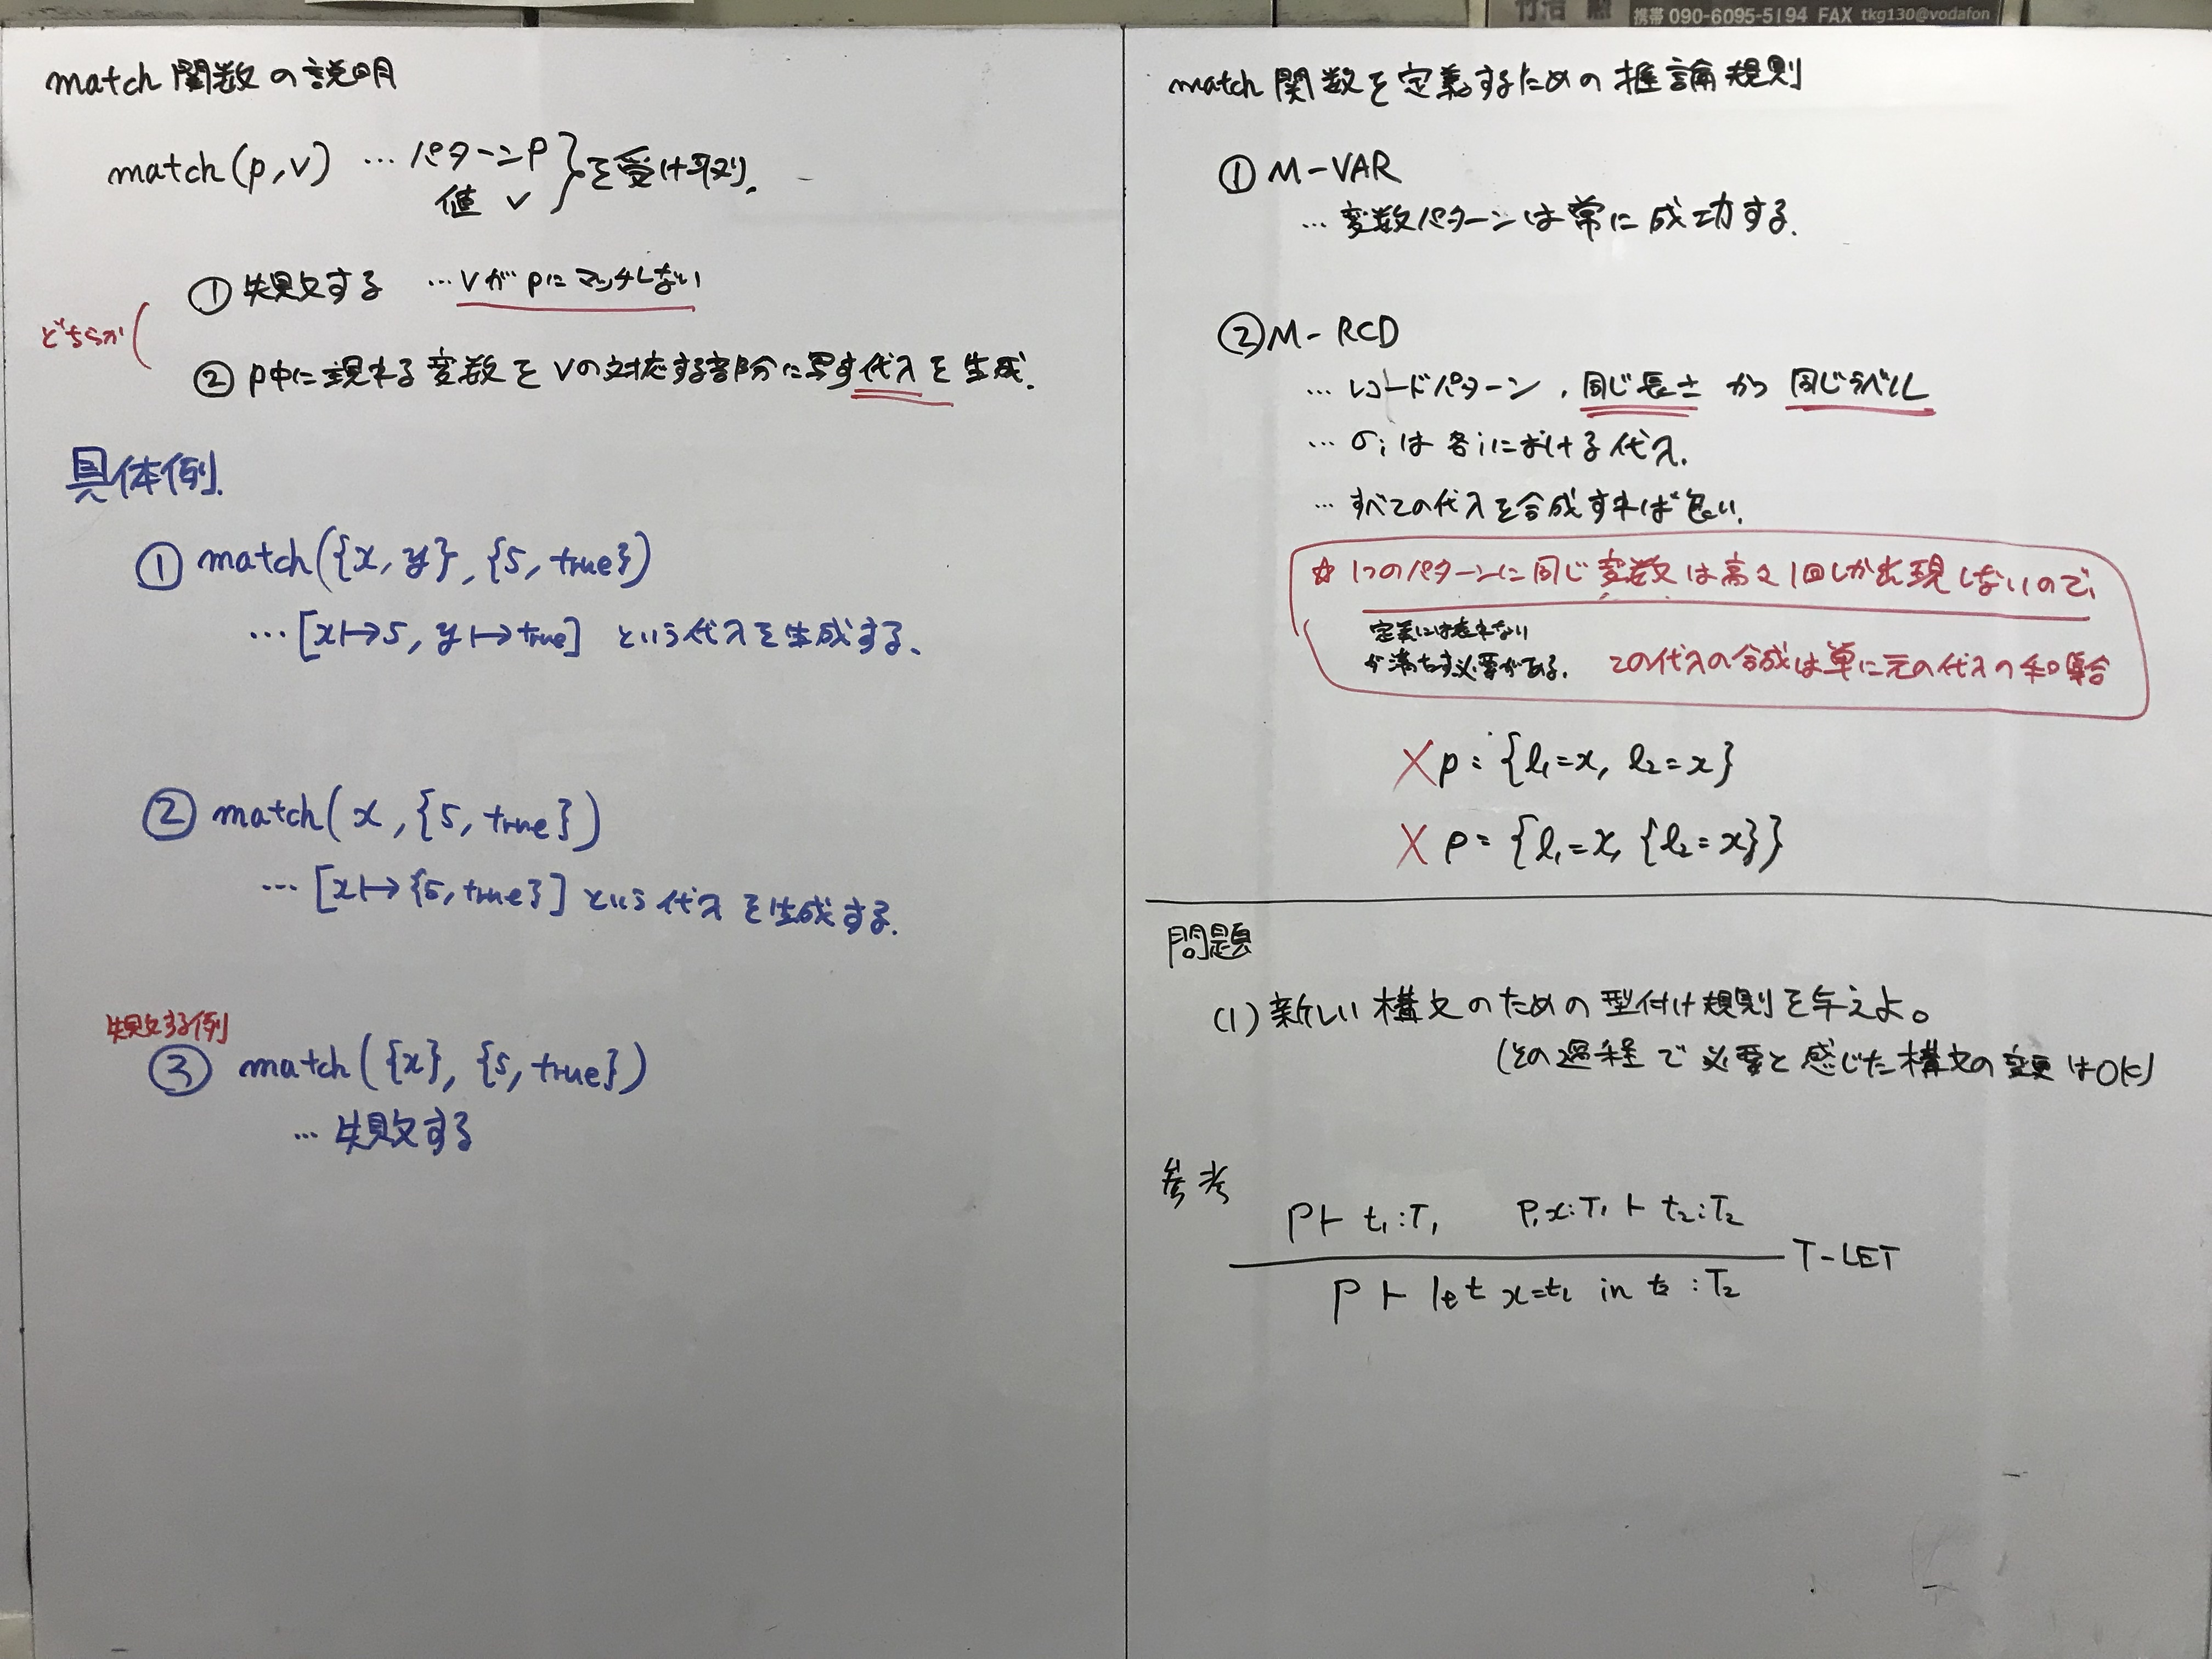 携帯 090-6095-5194 FAX tkg130@vodafon
match 関数の説明
match(p,v) … パターンp
値 v
を受け取り.
どちらか
① 失敗する …vがpにマッチしない
② p中に現れる変数をvの対応する部分に写す代入を生成.
具体例.
① match({x, y}, {5, true})
… [x↦5, y↦true] という代入を生成する.
② match(x, {5, true})
… [x↦{5, true}] という代入を生成する.
失敗する例
③ match({x}, {5, true})
… 失敗する
match 関数を定義するための推論規則
① M-VAR
… 変数パターンは常に成功する.
② M-RCD
… レコードパターン, 同じ長さ かつ 同じラベル
… σiは各iにおける代入.
… すべての代入を合成すれば良い.
☆ 1つのパターンに同じ変数は高々1回しか出現しないので,
定義には表れない
が満たす必要がある.
この代入の合成は単に元の代入の和集合
× p = {l₁=x, l₂=x}
× p = {l₁=x, {l₂=x}}
問題
(1) 新しい構文のための型付け規則を与えよ。
(その過程で必要と感じた構文の変更はOK)
参考
Γ⊢ t₁:T₁ Γ,x:T₁ ⊢ t₂:T₂
T-LET
Γ ⊢ let x=t₁ in t₂ :T₂